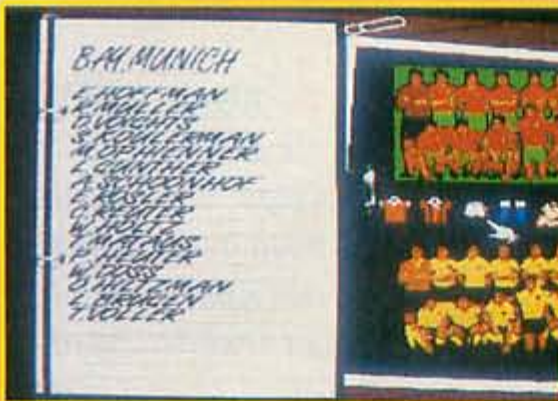 BAY.MUNICH
E.HOFFMAN
R.MULLER
D.VOGHTS
S.KOHLERMAN
M.OSHENNER
L.GUNTHER
A.SCHOONHOF
D.ROSLER
C.REUTER
W.HOLTZ
T.MATAUS
P.HEUTER
W.DOSS
O.HILTZMAN
L.BROHLEN
T.VOLLER